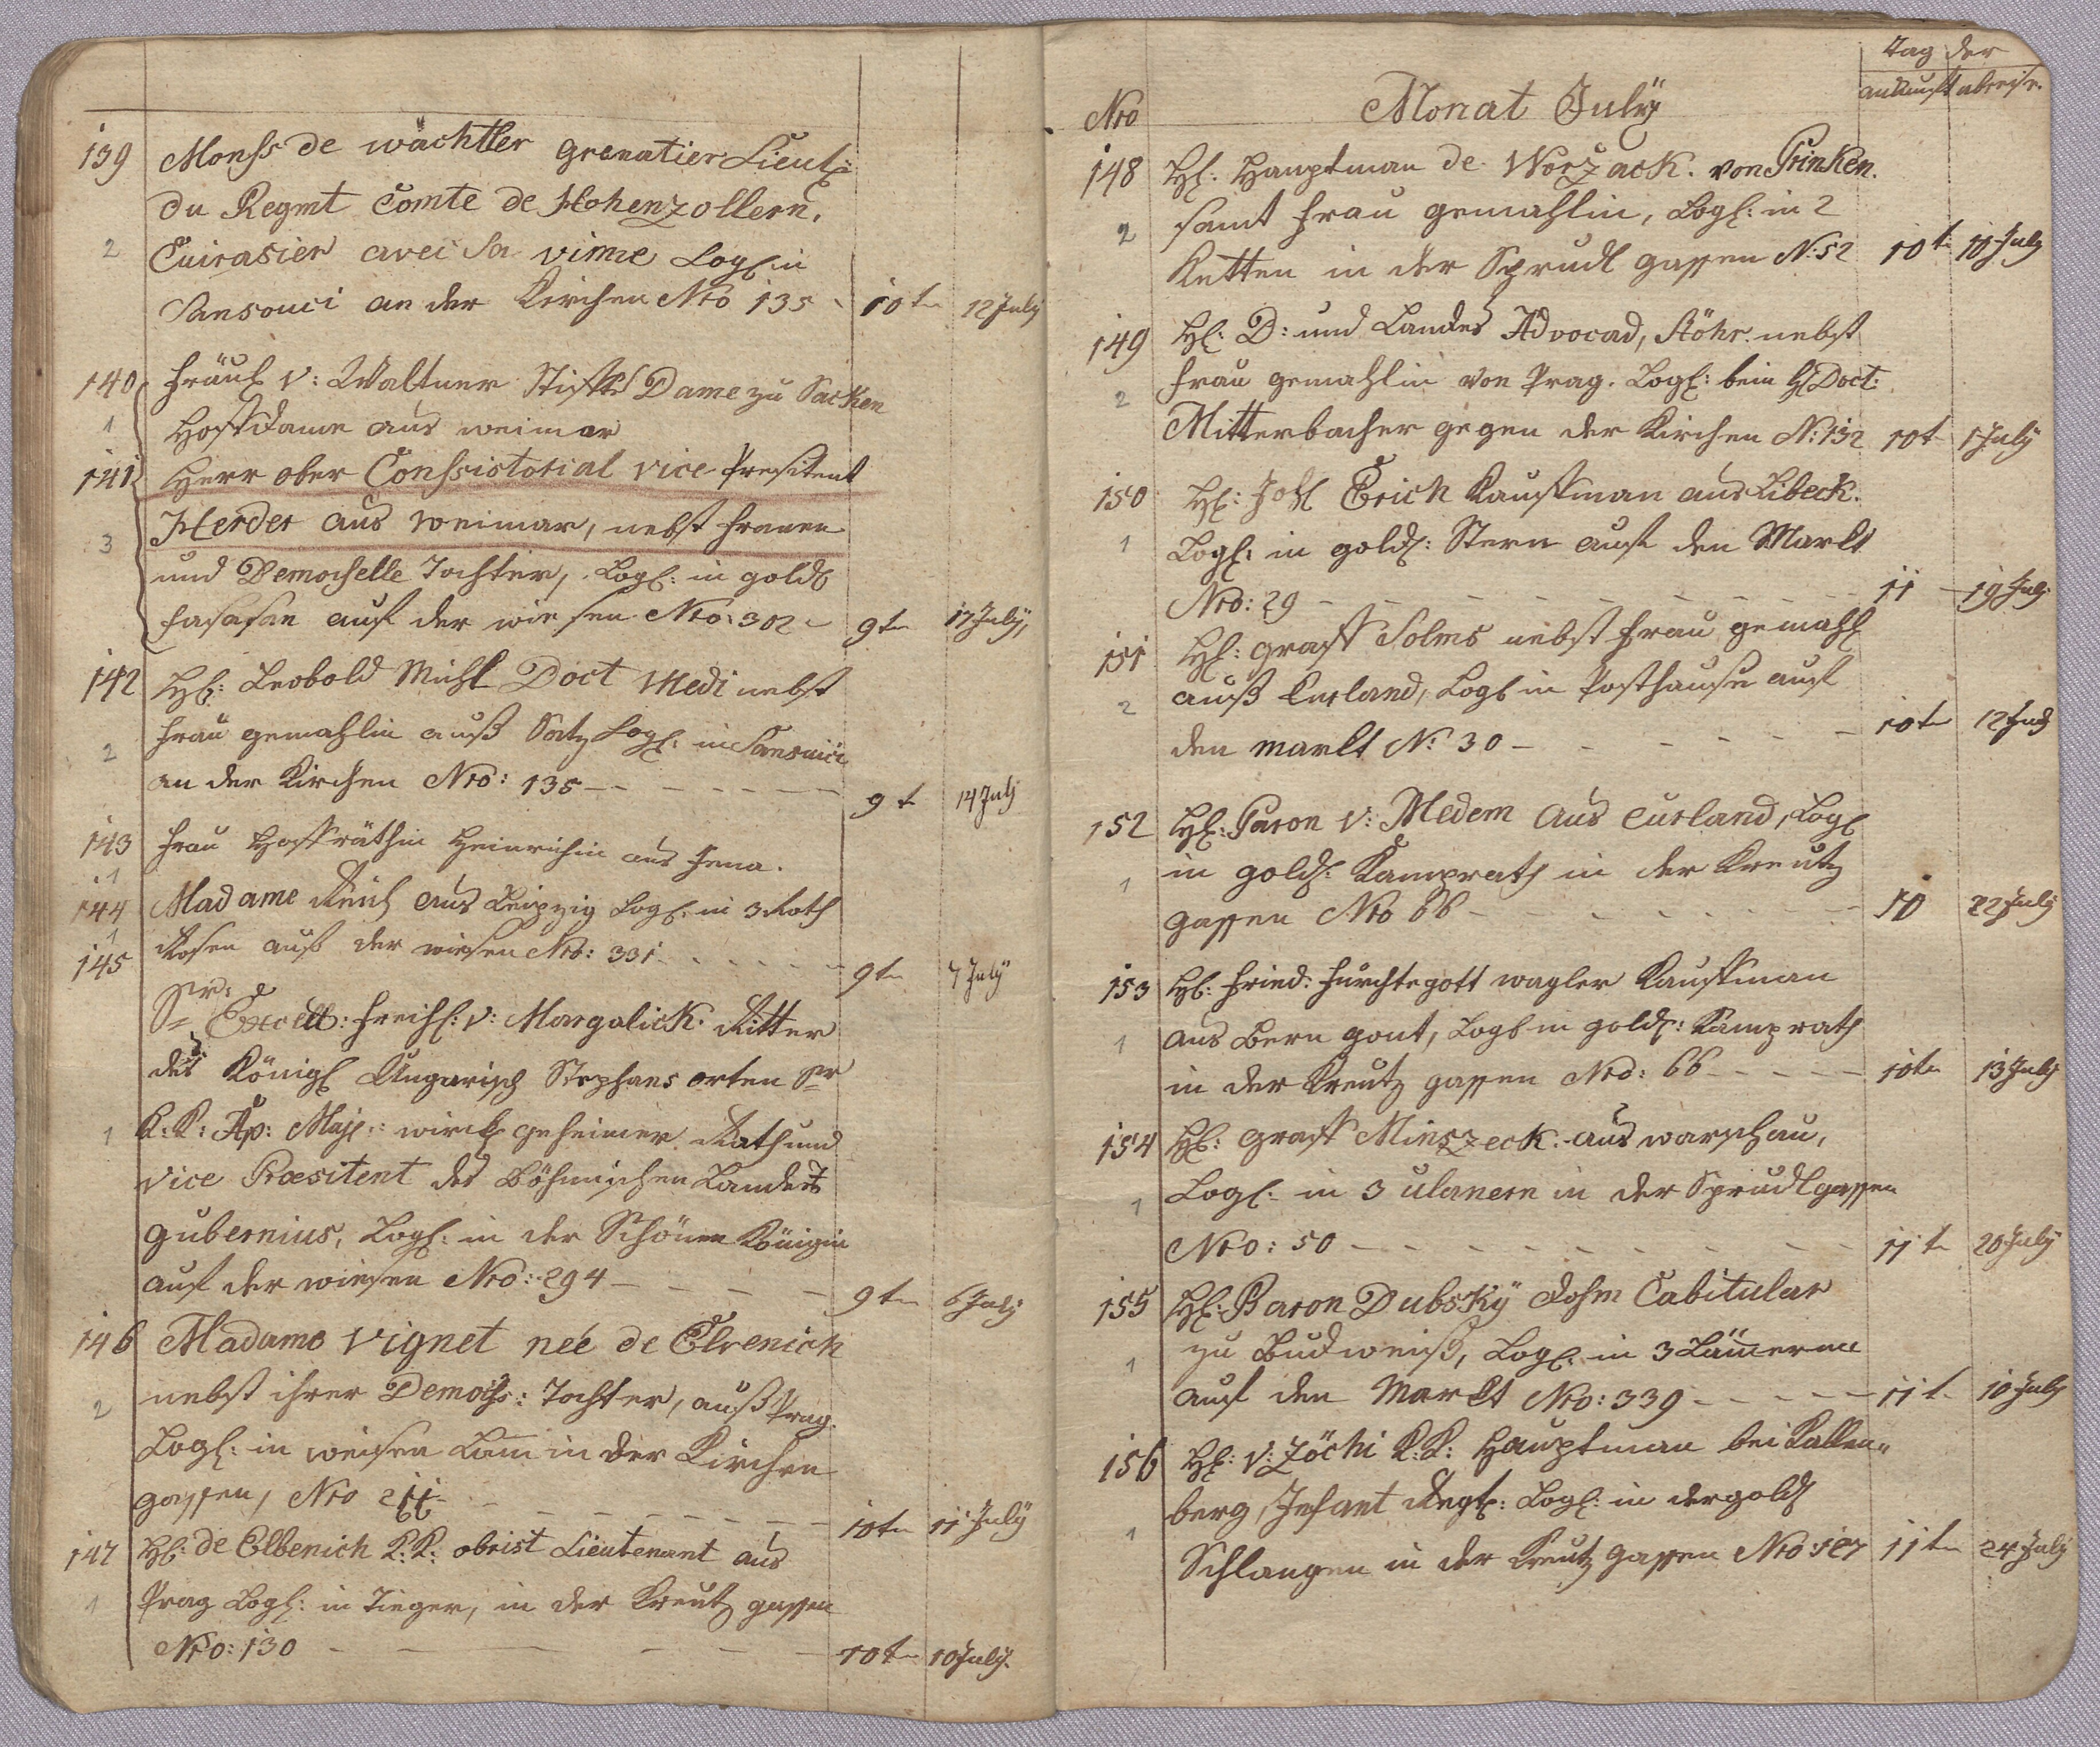 139 Monss de wächtler grenatier Lieut:
du Regmt Comte de Hohenzollern.
2 Cuirasier avec Sa Logl: in
Sansouci an der Kirchen Nro 135 10t 12 July
140 Fräul: v: Waltner Stiffts Dame zu Sacken
1 Hoffdame aus weimar
141 Herr ober Conssistorial vice Presitent
Herder aus Weimar, nebst Frauen
3 und Demoiselle Tochter, Logl: in gold:
Fasahn auf der wiesen Nro: 302 9t 17 July,
142 Hl: Leobold Michl Doct Medi nebst
Frau gemahlin auß Logl: in Sansouci
2 an der Kirchen Nro: 135 9t 14 July
143 Frau Hoffräthin Heinrichin aus Jena.
1
144 Madame Reich aus Leipzig Logl: in 3 Roth
1 Rosen auf der wiesen Nro: 331 9t 7 July
145 Sr: Excell: Freihl: v: Margolick Ritter
des Königl Ungarisch Stephans orten Sr
1 K: K: Ap: Maje: wirckl geheimer Rath und
vice Præsitent des Böhmischen Landes
gubernius, Logl: in der Schönen Königin
auf der wiesen Nro: 294 9t 6 July
146 Madame Vignet neé de Elvenich
nebst ihrer Demoiss: Tochter, auß Prag.
2 Logl: in weisen Lam in der Kirchen
gassen, Nro 211 10t 11 July
147 Hl: de Elbenich K: K: obrist Lieutenant aus
1 Prag Logl: in Tieger, in der Kreutz gassen
Nro: 130 10t 10 July.
Tag der
Nro Monat July ankunft abreise.
148 Hl: Hauptman de Worzack. von
samt Frau gemahlin, Logl: in 2
2 Ketten in der Sprudl gassen N: 52 10t 10 July
149 Hl: D: und Landes Advocad, Stöhr. nebst
Frau gemahlin von Prag. Logl: bein H Doct:
2 Mitterbacher gegen der Kirchen N: 132 10t July
150 Hl: Joh: Erich Kauffman aus Libeck.
1 Logl: in gold: Stern auf den Markt
Nro: 29 11 19 July
151 Hl: graff Solms nebst Frau gemahl
auß Curland, Logl in Posthause auf
2 den markt N: 30 10t 12 July
152 Hl: Baron v: Medem aus Curland, Logl
in gold: Kamprath in der Kreutz
1 gassen Nro 66 10 22 July
153 Hl: Fried: Fürchtegott wagler Kauffman
aus Logl in gold: Kamprath
1 in der Kreutz gassen Nro: 66 10t 13 July
154 Hl: graff Minszeck. aus warschau,
Logl: in 3 ulanern in der Sprudl gassen
1 Nro: 50 11t 20 July
155 Hl: Baron Dubsky Dohm Cabitular
zu Budweiß, Logl: in 3 Lämern
1 auf den Markt Nro: 339 11t 10 July
156 Hl: v: Zöchi K: K: Hauptman bei Kallen„
berg, Infant Regt: Logl: in der gold
1 Schlangen in der Kreutz gassen Nro: 127 11t 24 July